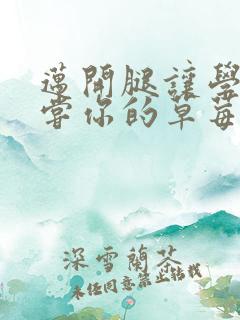 邁開腿讓學
嘗你的草莓
深雪蘭茶
未经同意禁止转载